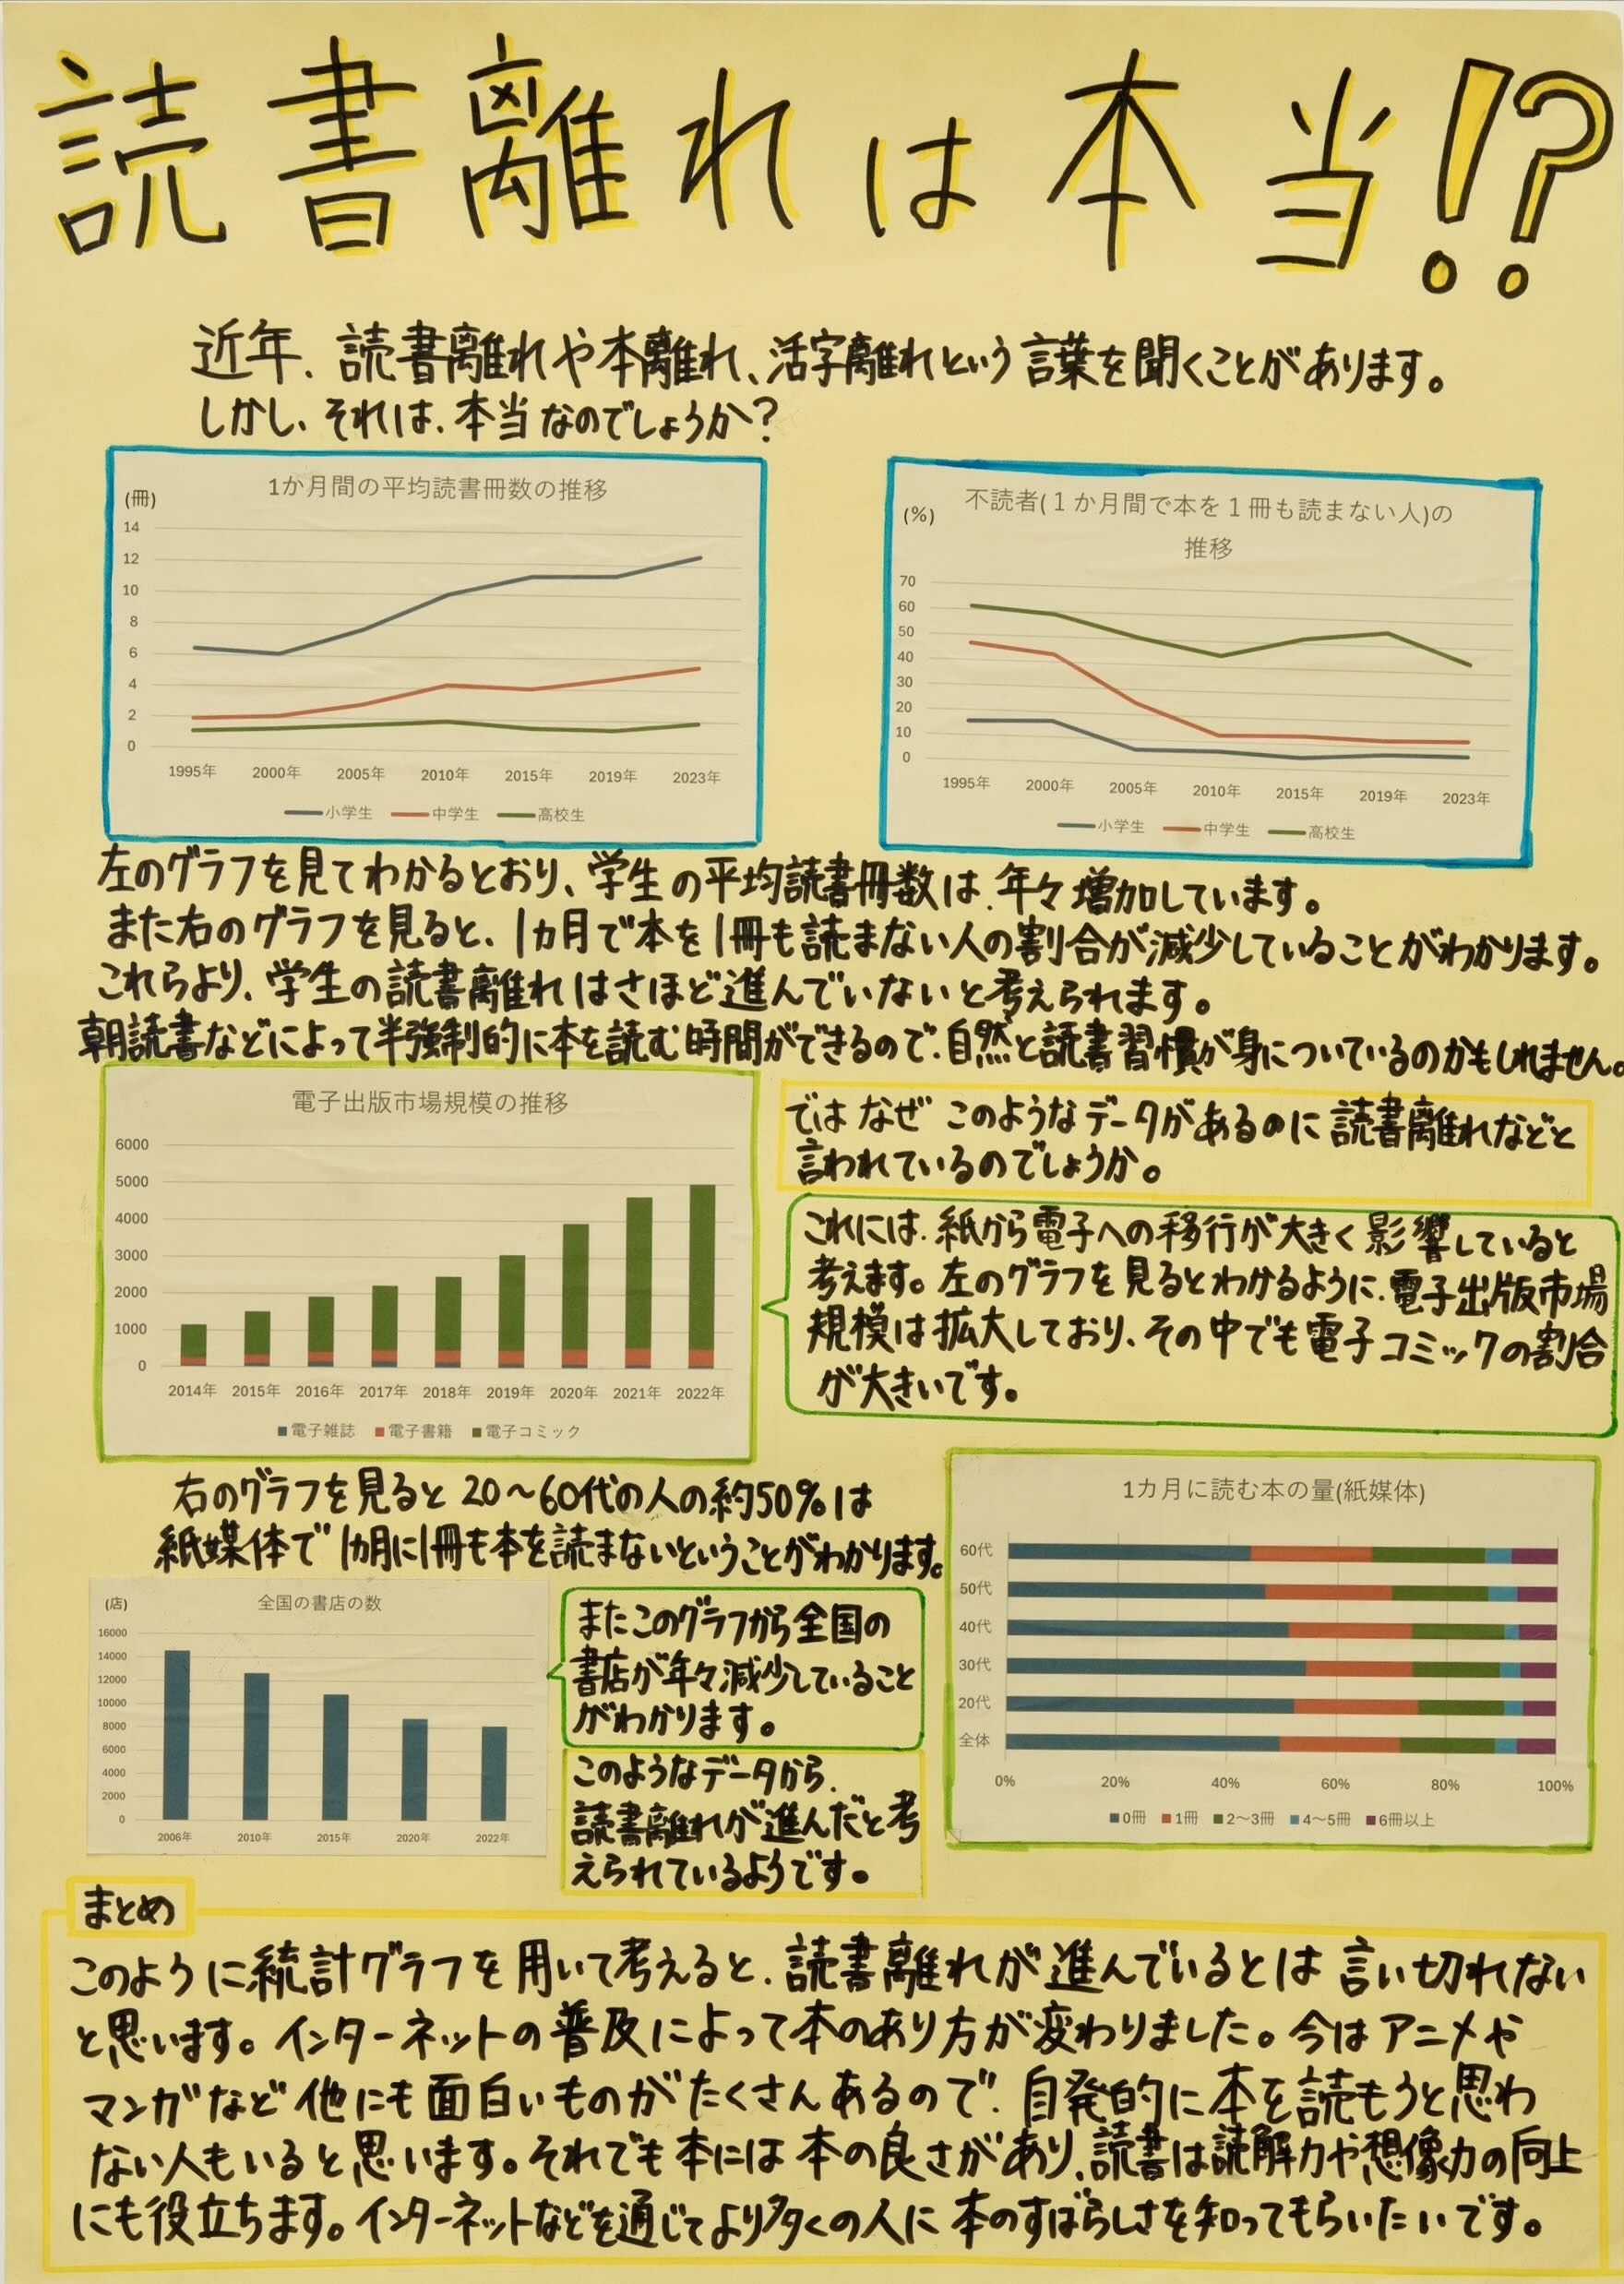 読書離れは本当!?
近年、読書離れや本離れ、活字離れという言葉を聞くことがあります。
しかし、それは、本当なのでしょうか?
1か月間の平均読書冊数の推移
(冊)
14
12
10
8
6
4
2
0
1995年 2000年 2005年 2010年 2015年 2019年 2023年
小学生 中学生 高校生
不読者(1か月間で本を1冊も読まない人)の
推移
(%)
70
60
50
40
30
20
10
0
1995年 2000年 2005年 2010年 2015年 2019年 2023年
小学生 中学生 高校生
左のグラフを見てわかるとおり、学生の平均読書冊数は、年々増加しています。
また右のグラフを見ると、1ヵ月で本を1冊も読まない人の割合が減少していることがわかります。
これらより、学生の読書離れはさほど進んでいないと考えられます。
朝読書などによって半強制的に本を読む時間ができるので、自然と読書習慣が身についているのかもしれません。
電子出版市場規模の推移
6000
5000
4000
3000
2000
1000
0
2014年 2015年 2016年 2017年 2018年 2019年 2020年 2021年 2022年
電子雑誌 電子書籍 電子コミック
ではなぜこのようなデータがあるのに読書離れなどと
言われているのでしょうか。
これには、紙から電子への移行が大きく影響していると
考えます。左のグラフを見るとわかるように、電子出版市場
規模は拡大しており、その中でも電子コミックの割合
が大きいです。
右のグラフを見ると20〜60代の人の約50%は
紙媒体で1ヵ月に1冊も本を読まないということがわかります。
1カ月に読む本の量(紙媒体)
60代
50代
40代
30代
20代
全体
0% 20% 40% 60% 80% 100%
0冊 1冊 2〜3冊 4〜5冊 6冊以上
全国の書店の数
(店)
16000
14000
12000
10000
8000
6000
4000
2000
0
2006年 2010年 2015年 2020年 2022年
またこのグラフから全国の
書店が年々減少していること
がわかります。
このようなデータから、
読書離れが進んだと考
えられているようです。
まとめ
このように統計グラフを用いて考えると、読書離れが進んでいるとは言い切れない
と思います。インターネットの普及によって本のあり方が変わりました。今はアニメや
マンガなど他にも面白いものがたくさんあるので、自発的に本を読もうと思わ
ない人もいると思います。それでも本には本の良さがあり、読書は読解力や想像力の向上
にも役立ちます。インターネットなどを通じてより多くの人に本のすばらしさを知ってもらいたいです。